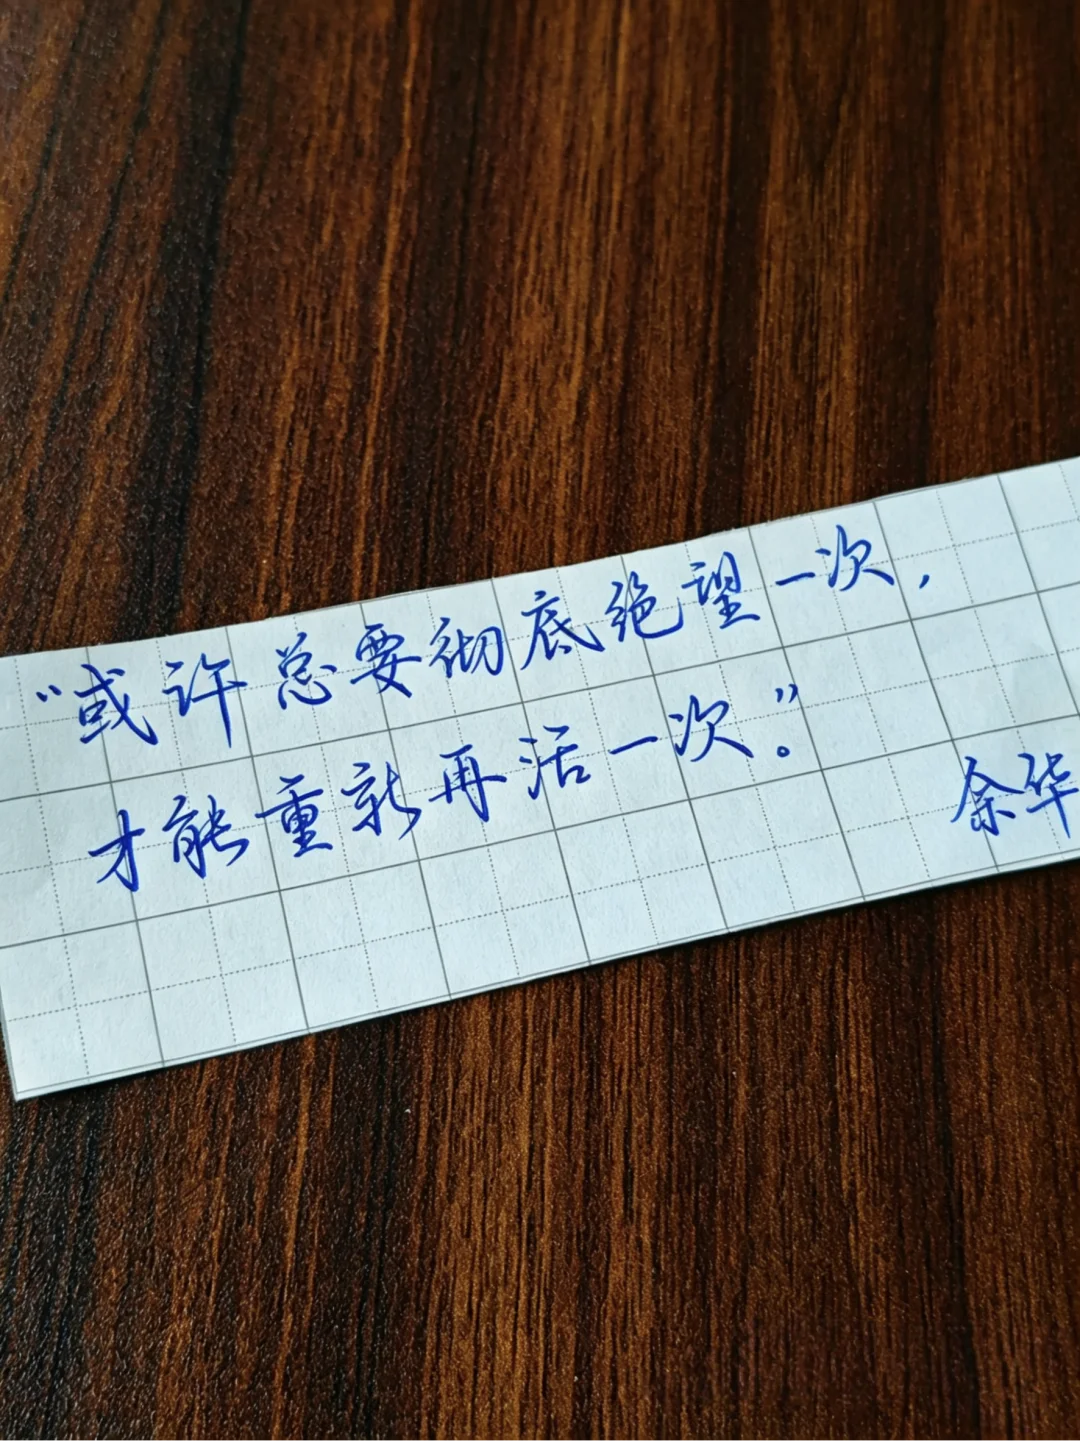 “或许总要彻底绝望一次，
才能重新再活一次。”
余华